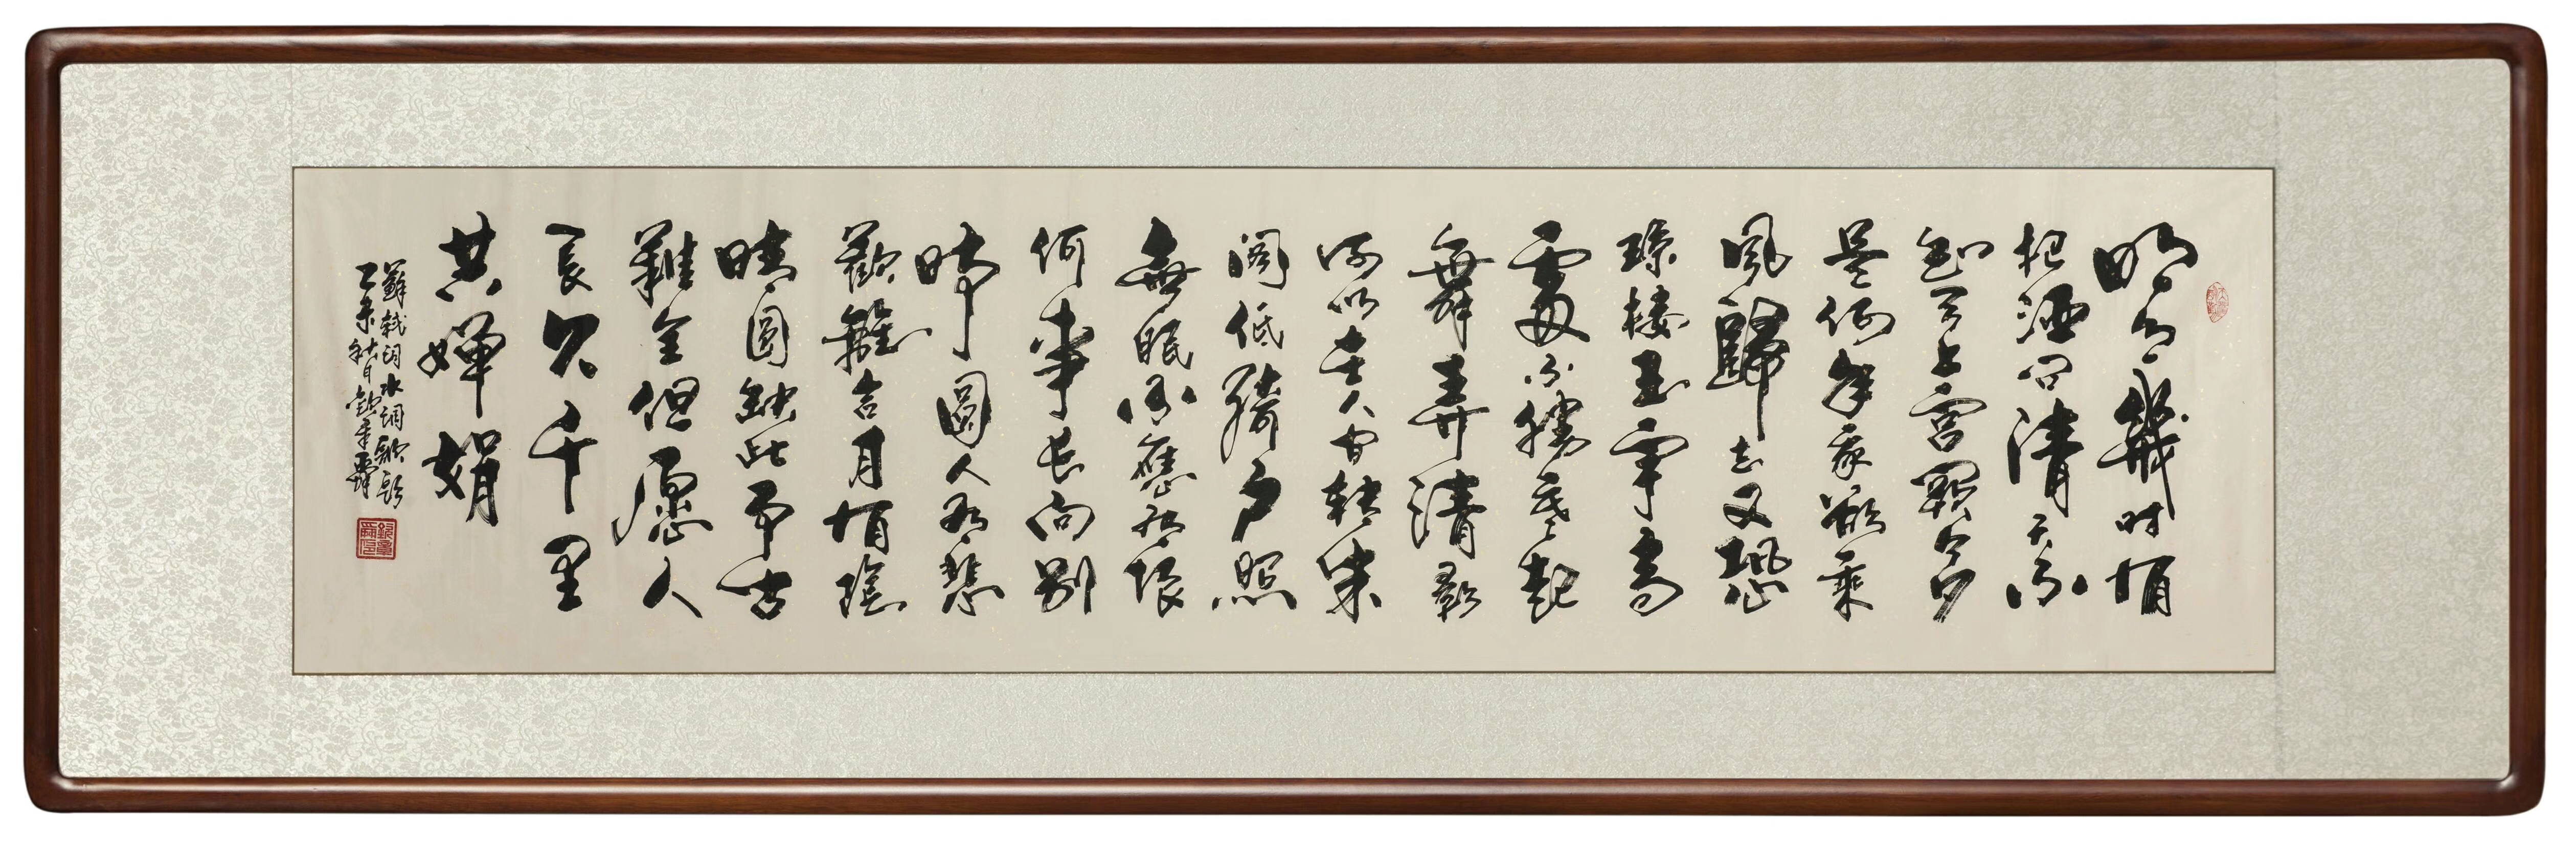 明月幾時有
把酒問清天不
知天上宮闕今夕
是何年我欲乘
風歸去又恐
瓊樓玉宇高
處不勝寒起
舞弄清影
何似在人間轉朱
閣低綺户照
無眠不應有恨
何事長向別
時圓人有悲
歡離合月有陰
晴圓缺此事古
難全但愿人
長久千里
共嬋娟
蘇軾詞水調歌頭
乙未秋日